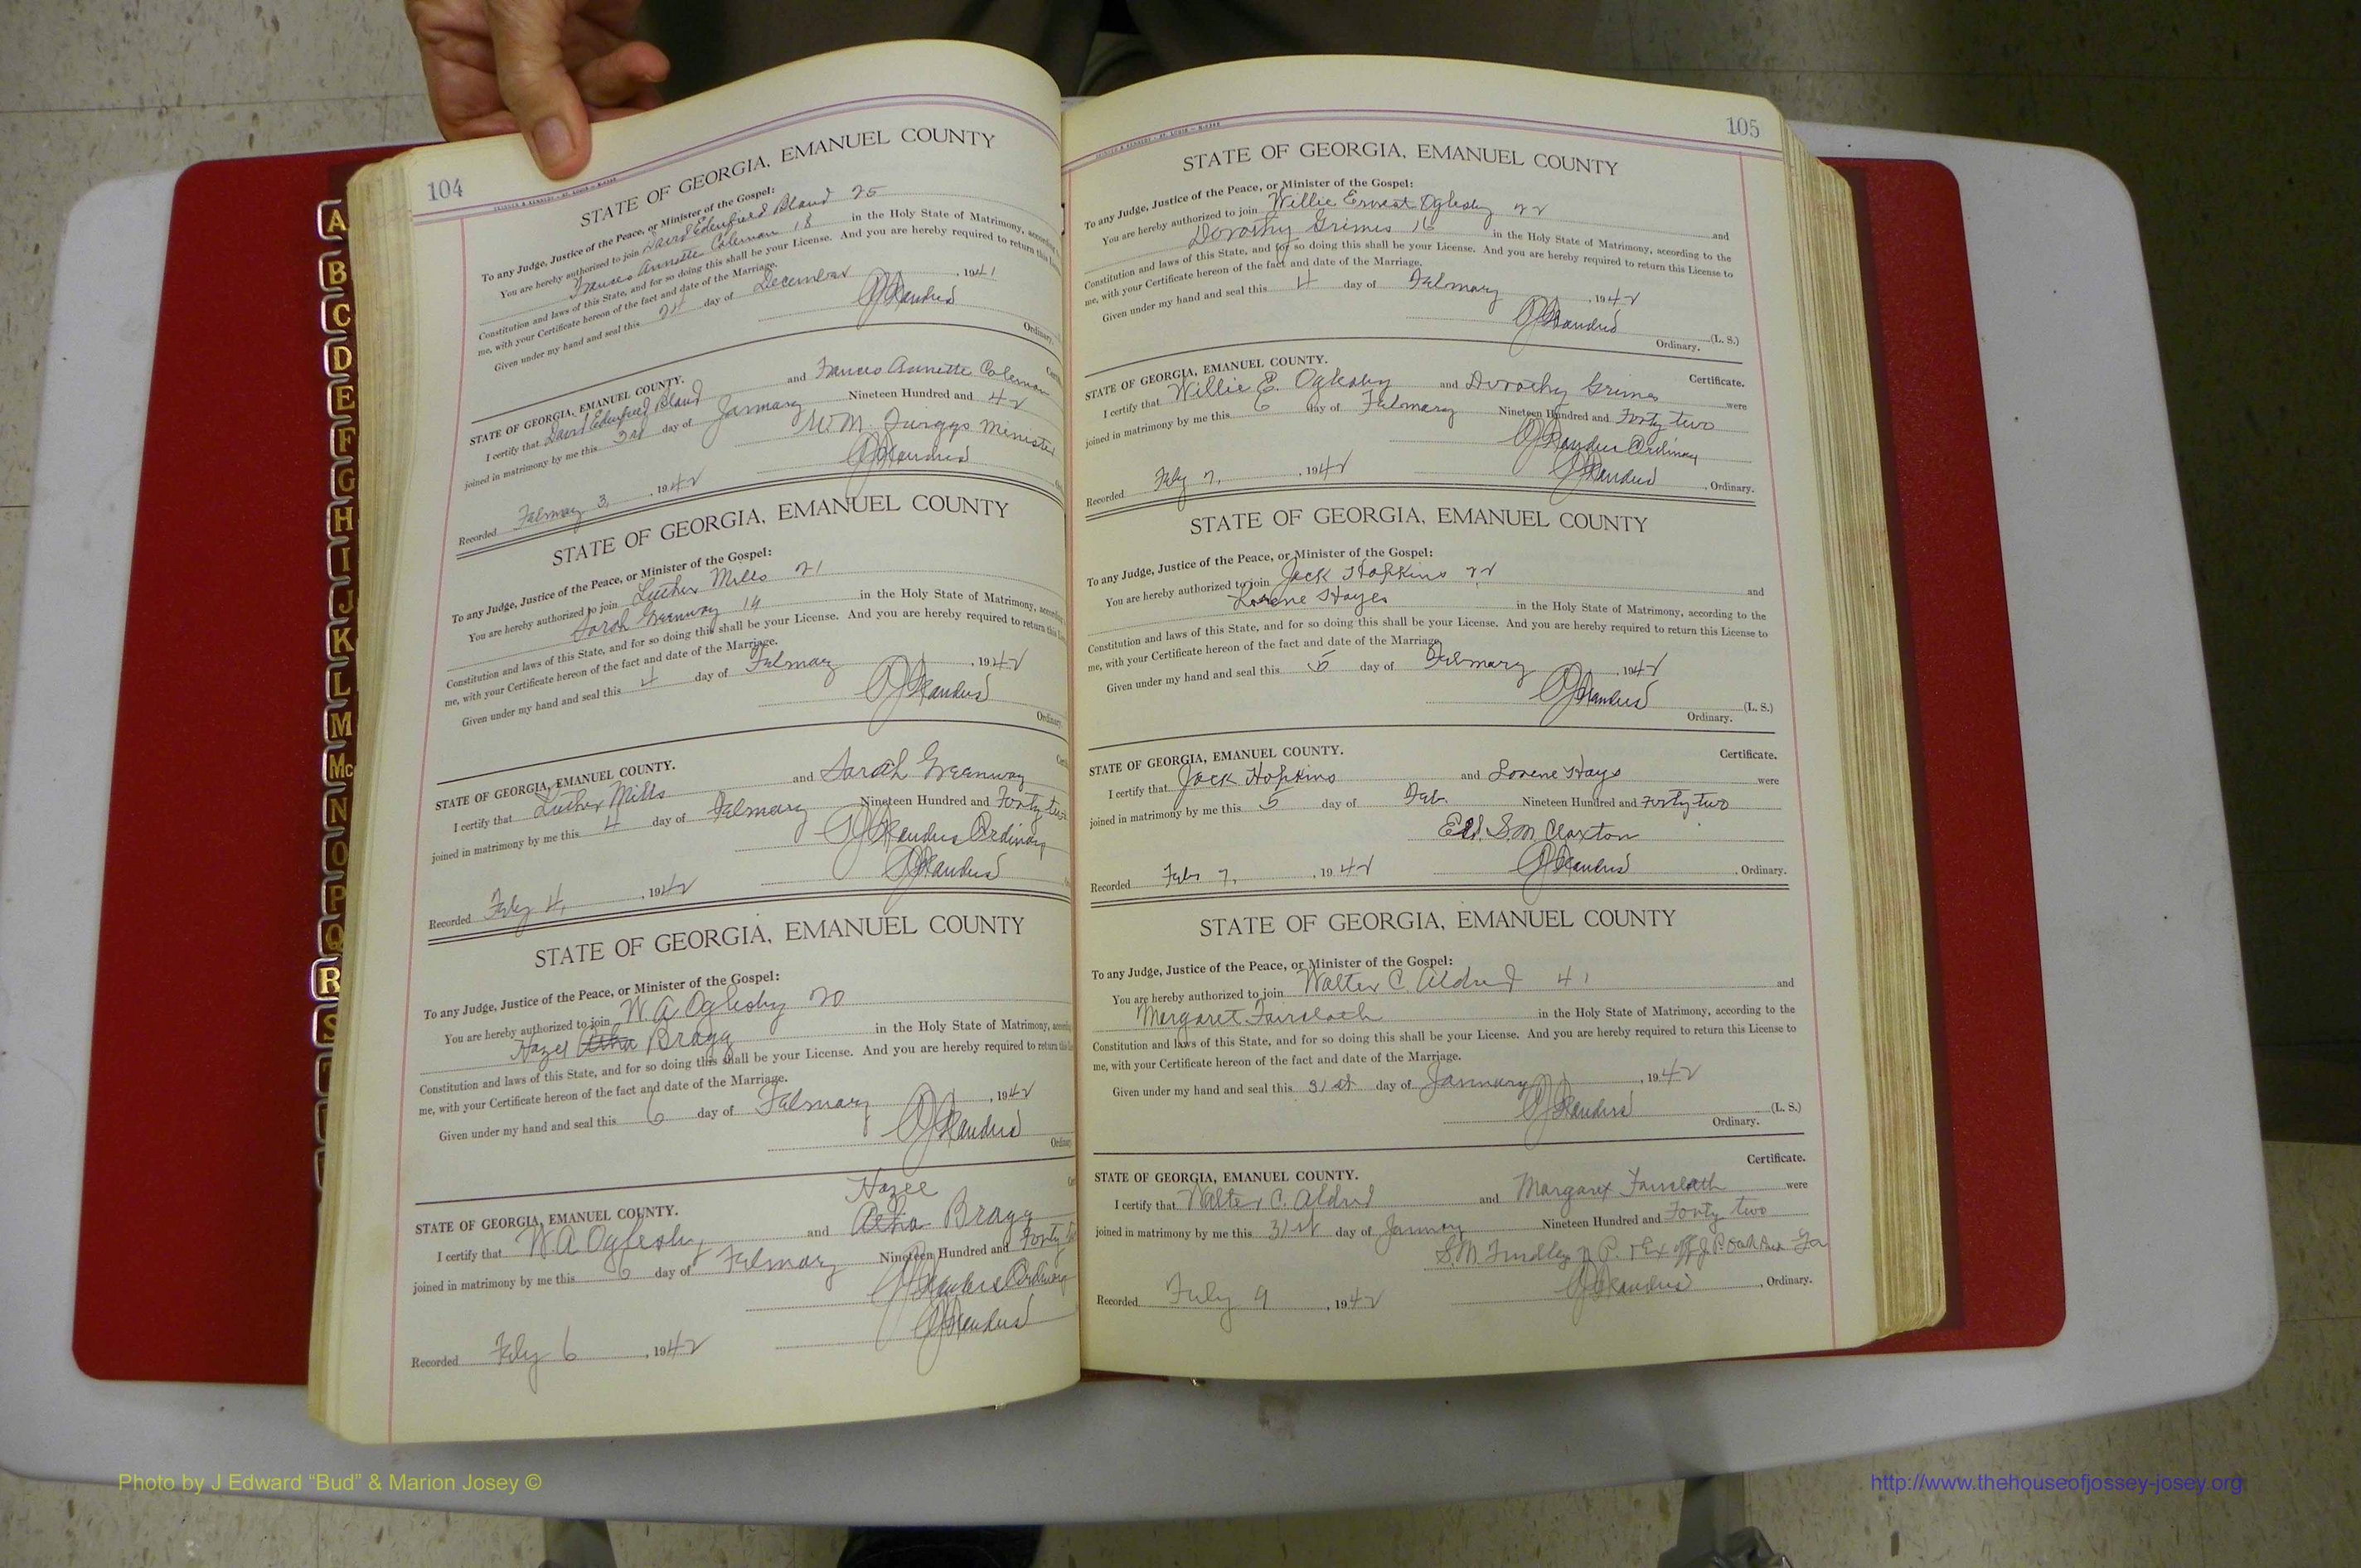 104
STATE OF GEORGIA, EMANUEL COUNTY
To any Judge, Justice of the Peace, or Minister of the Gospel:
You are hereby authorized to join David Edenfield Bland 25
Frances Annette Coleman 18 in the Holy State of Matrimony, according
Constitution and laws of this State, and for so doing this shall be your License. And you are hereby required to return this
me, with your Certificate hereon of the fact and date of the Marriage.
Given under my hand and seal this 24 day of December, 1941
Ordinary.
STATE OF GEORGIA, EMANUEL COUNTY.
I certify that David Edenfield Bland and Frances Annette Coleman
joined in matrimony by me this 3rd day of January Nineteen Hundred and 42
Minister
Recorded February 3, 1942
STATE OF GEORGIA, EMANUEL COUNTY
To any Judge, Justice of the Peace, or Minister of the Gospel:
You are hereby authorized to join Luther Mills 21
Sarah Greenway in the Holy State of Matrimony, according
Constitution and laws of this State, and for so doing this shall be your License. And you are hereby required to return this
me, with your Certificate hereon of the fact and date of the Marriage.
Given under my hand and seal this 4 day of February, 1942
Ordinary.
STATE OF GEORGIA, EMANUEL COUNTY.
I certify that Luther Mills and Sarah Greenway
joined in matrimony by me this 4 day of February Nineteen Hundred and Forty two
Ordinary
Recorded Feby 4, 1942
STATE OF GEORGIA, EMANUEL COUNTY
To any Judge, Justice of the Peace, or Minister of the Gospel:
You are hereby authorized to join W. A Oglesby 20
Hazel Bragg in the Holy State of Matrimony,
Constitution and laws of this State, and for so doing this shall be your License. And you are hereby required to return
me, with your Certificate hereon of the fact and date of the Marriage.
Given under my hand and seal this 6 day of February, 1942
Ordinary
Hazel
STATE OF GEORGIA, EMANUEL COUNTY.
I certify that W. A Oglesby and Bragg
joined in matrimony by me this 6 day of February Nineteen Hundred and Forty
Ordinary
Recorded Feby 6, 1942
105
STATE OF GEORGIA, EMANUEL COUNTY
To any Judge, Justice of the Peace, or Minister of the Gospel:
You are hereby authorized to join Willie Ernest Oglesby 22 and
Dorothy Grimes 16 in the Holy State of Matrimony, according to the
Constitution and laws of this State, and for so doing this shall be your License. And you are hereby required to return this License to
me, with your Certificate hereon of the fact and date of the Marriage.
Given under my hand and seal this 4 day of February, 1942
(L. S.)
Ordinary.
Certificate.
STATE OF GEORGIA, EMANUEL COUNTY.
I certify that Willie E. Oglesby and Dorothy Grimes were
joined in matrimony by me this 6 day of February Nineteen Hundred and Forty two
Ordinary
Recorded Feby 7, 1942 Ordinary.
STATE OF GEORGIA, EMANUEL COUNTY
To any Judge, Justice of the Peace, or Minister of the Gospel:
You are hereby authorized to join Jack Hopkins 22 and
Lorene Hayes in the Holy State of Matrimony, according to the
Constitution and laws of this State, and for so doing this shall be your License. And you are hereby required to return this License to
me, with your Certificate hereon of the fact and date of the Marriage.
Given under my hand and seal this 5 day of February, 1942
(L. S.)
Ordinary.
Certificate.
STATE OF GEORGIA, EMANUEL COUNTY.
I certify that Jack Hopkins and Lorene Hays were
joined in matrimony by me this 5 day of Feb. Nineteen Hundred and Forty two
Eld. S.M. Claxton
Recorded Feb 7, 1942 Ordinary.
STATE OF GEORGIA, EMANUEL COUNTY
To any Judge, Justice of the Peace, or Minister of the Gospel:
You are hereby authorized to join Walter C. Aldred 41 and
Margaret in the Holy State of Matrimony, according to the
Constitution and laws of this State, and for so doing this shall be your License. And you are hereby required to return this License to
me, with your Certificate hereon of the fact and date of the Marriage.
Given under my hand and seal this 31st day of January, 1942
(L. S.)
Ordinary.
Certificate.
STATE OF GEORGIA, EMANUEL COUNTY.
I certify that Walter C. Aldred and Margaret were
joined in matrimony by me this 31st day of January Nineteen Hundred and Forty two
S.M. Findley
Recorded Feby 9, 1942 Ordinary.
A
B
C
D
E
F
G
H
I
J
K
L
M
Mc
N
O
P
Q
R
S
Photo by J Edward “Bud” & Marion Josey ©
http://www.thehouseofjossey-josey.org